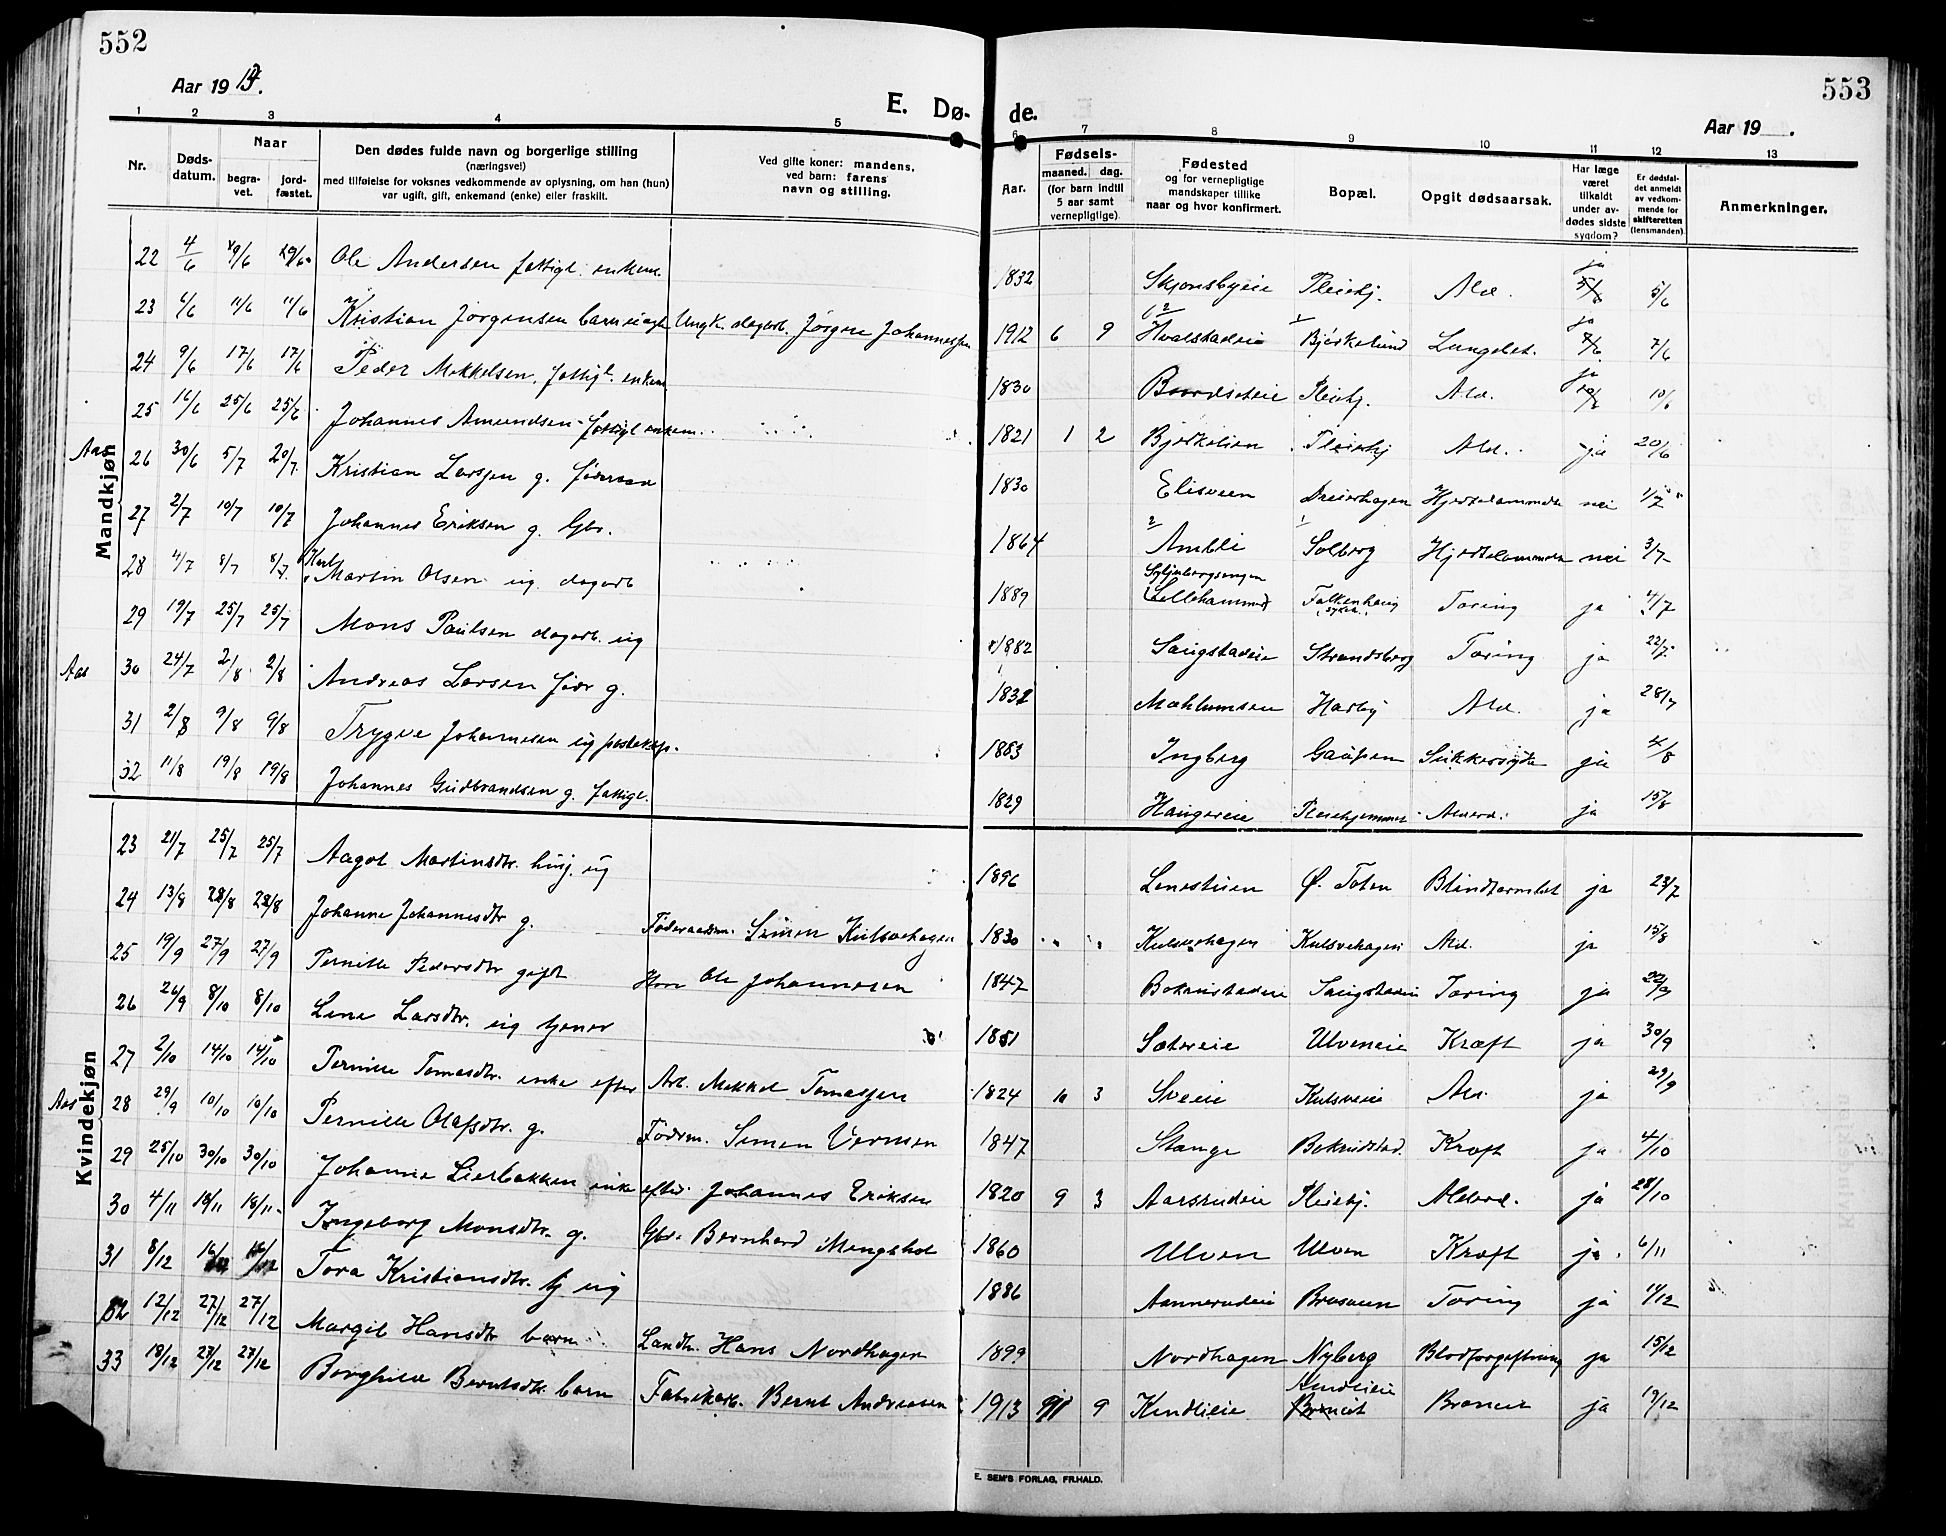 552
553
Aar 1913.
E. Dø-
de.
Aar 19 .
1 2 3 4 5 6 7 8 9 10 11 12 13
Nr.
Døds-datum.
Naar
begra-vet.
jord-fæstet.
Den dødes fulde navn og borgerlige stilling
(næringsvei)
med tilføielse for voksnes vedkommende av oplysning, om han (hun)
var ugift, gift, enkemand (enke) eller fraskilt.
Ved gifte koner: mandens,
ved barn: farens
navn og stilling.
Aar.
Fødsels-
maaned. dag.
(for barn indtil
5 aar samt
vernepligtige).
Fødested
og for vernepligtige
mandskaper tillike
naar og hvor konfirmert.
Bopæl.
Opgit dødsaarsak.
Har læge
været
tilkaldt
under av-
dødes sidste
sygdom?
Er dødsfal-
det anmeldt
av vedkom-
mende for
skifteretten
(lensmanden).
Anmerkninger.
Mandkjøn
22 4/6 Ole Andersen fattigl. enkem. 1832 Pleiehj. Ald. ja 5/6
23 6/6 11/6 11/6 Kristian Jørgensen barn Ungk. dagarb. Jørgen Johannessen 1912 6 9 Hvalstadeie Bjørkelund Lungebet. ja 7/6
24 9/6 17/6 17/6 Peder Mikkelsen, fattigl. enkem 1830 Pleiehj. Ald. ja 10/6
25 16/6 25/6 25/6 Johannes Amundsen fattigl enkem. 1821 1 2 Bjørkelien Pleiehj Ald. ja 20/6
Aas 26 30/6 5/7 20/7 Kristian Larsen g. føderaad 1830 Elisveen Dreierhagen nei
27 2/7 10/7 10/7 Johannes Eriksen g. Gbr. 1864 Ambli Solberg nei 3/7
28 4/7 8/7 8/7 Karl Martin Olsen ug. dagarb 1889 (Lillehammer) Falkenhaug Tæring ja 4/7
29 19/7 25/7 25/7 Mons Paulsen dagarb. ug 1882 Saugstadeie Strandsberg Tæring ja 22/7
Aas 30 24/7 2/8 2/8 Andreas Larsen før g. 1832 Mæhlumseie Harby Ald. ja 28/7
31 2/8 9/8 9/8 Trygve Johannesen ug posteksp. 1883 Ingberg Gaupen Sukkersyke ja 4/8
32 11/8 19/8 19/8 Johannes Gudbrandsen g. fattigl. 1829 Haugereie Pleiehjemmet Alderd. ja 15/8
Kvindekjøn
23 21/7 25/7 25/7 Aagot Martinsdtr. husj. ug 1896 Lenestuen Ø. Toten Blindtarmbet ja 23/7
24 13/8 28/8 28/8 Johanne Johannesdtr g. Føderaadsm. Simen Kulsvehagen 1830 Kulsvehagen Kulsvehagen Ald. ja 15/8
25 19/9 27/9 27/9 Pernille Pedersdtr gift Ole Johannesen 1847 Bokrudstadeie Saugstadeie Tæring ja 22/9
26 26/9 8/10 8/10 Lene Larsdtr. ug tjener 1851 Sætereie Ulveneie Kræft ja 30/9
27 2/10 14/10 14/10 Pernille Tomasdtr. enke efter Arb. Mikkel Tomassen 1824 10 3 Sveeie Kulsveeie Ald. ja 29/9
Aas 28 29/9 10/10 10/10 Pernille Olafsdtr. g. Føderm. Simen Vermen 1847 Stange Bokrudstad. Kræft ja 4/10
29 25/10 30/10 30/10 Johanne Lierbakken enke efter Johannes Eriksen 1820 9 3 Aarsrudeie Pleiehj. Alderd. ja 28/10
30 4/11 18/11 18/11 Ingeborg Monsdtr. g. Gbr. Bernhard Mengshol 1860 Ulven Ulven Kræft ja 6/11
31 8/12 16/12 16/12 Tora Kristiansdtr. tj ug 1886 Aannerudeie Brasveen Tæring ja 11/12
32 12/12 27/12 27/12 Margit Hansdtr barn Landh. Hans Nordhagen 1899 Nordhagen Nyberg Blodforgiftning ja 15/12
33 18/12 27/12 27/12 Borghild Berntsdtr. barn Fabrikarb. Bernt Andreasen 1913 9 Kindlieie Kindlieie ja 19/12
E. SEM'S FORLAG, FR.HALD.